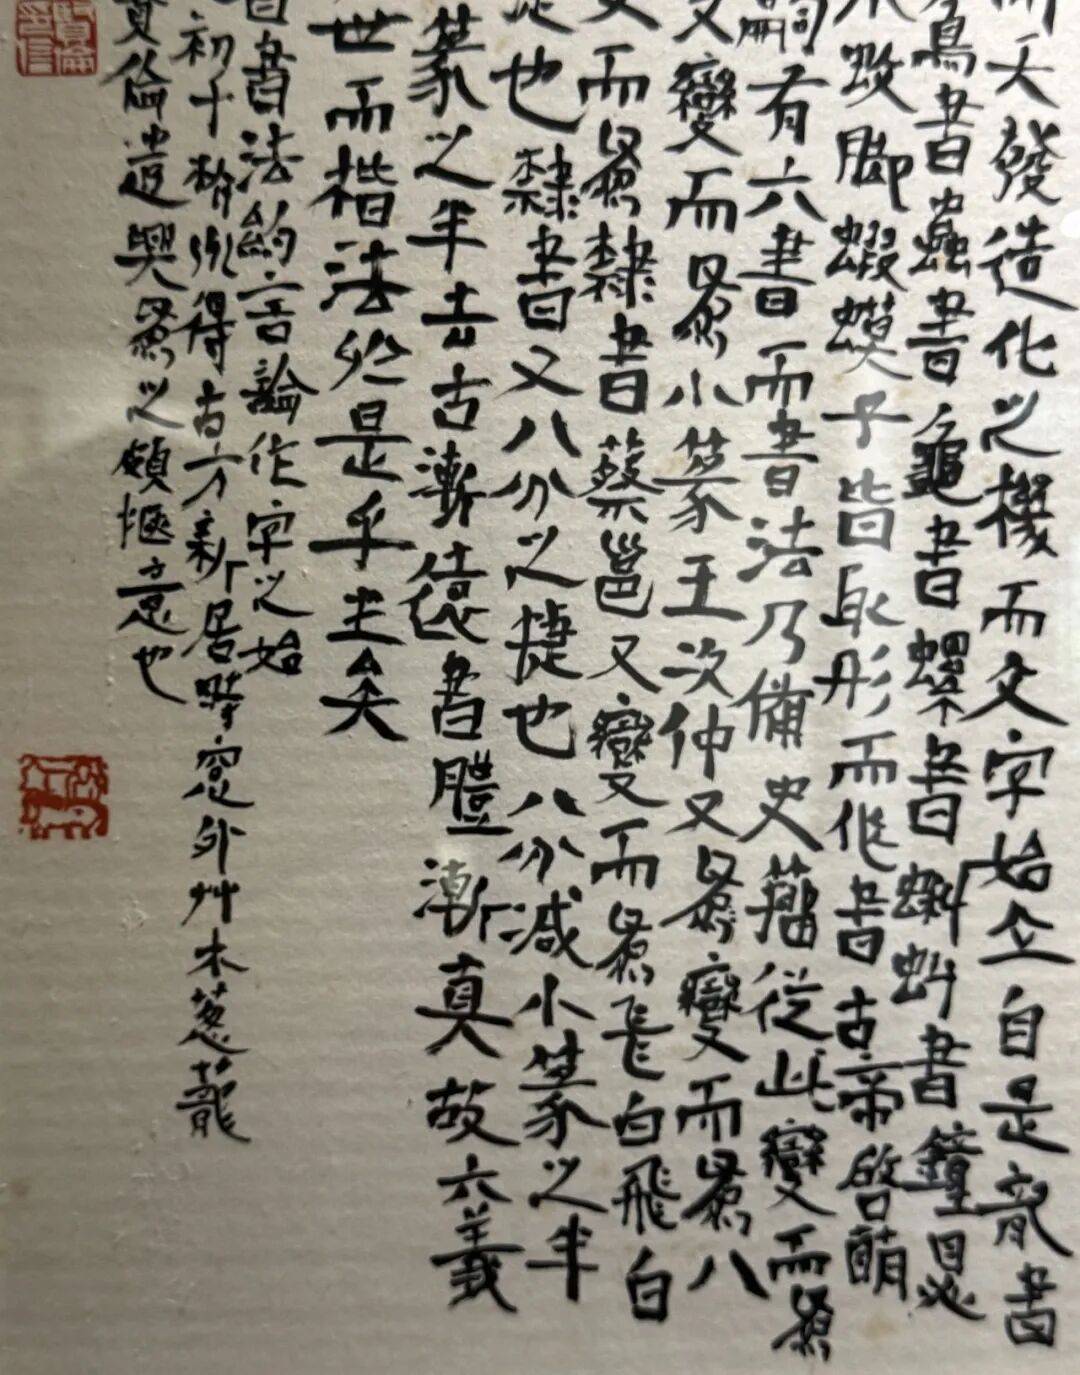 天發造化之機而文字始立自是龍書
鳥書蟲書龜書螺書蝌蚪書鐘
蚊脚蝦蟆子皆取形而作書古帝啓萌
嗣有六書而書法乃備史籀從此變而爲
又變而爲小篆王次仲又爲變而爲八
又而爲隸書蔡邕又變而爲飛白
捷也隸書又八分之捷也八分減小篆之半
篆之半去古漸遠書體漸真故六義
世而楷法於是乎生矣
書法約言論作字之始
初十於得古方新居窓外艸木葱蘢
遣興爲之頗惬意也